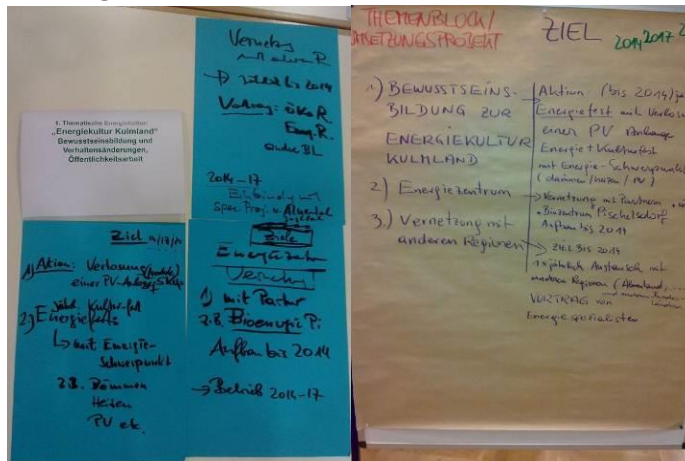 1. Thematische Energiekultur:
„Energiekultur Kulmland"
Bewusstseinsbildung und
Verhaltensänderungen,
Öffentlichkeitsarbeit
Vernetzg
mit anderen R
bis 2014
Vortrag: öko R.
Eng. R.
andre BL
2014-17
Einbindung mit
Spez. Proj. v. Almenland
Ziel 14/17/20
1) Aktion: Verlosung
einer PV-Anlage 5 kWp
jährl. Kultur-fest
2) Energiefest
mit Energie-
Schwerpunkt
z.B. Dämmen
Heizen
PV etc.
Ziele
Energiezentrum
Vernetzg
1) mit Partner
z.B. Bioenergie Pi.
Aufbau bis 2014
→ Betrieb 2014-17
THEMENBLOCK/
UMSETZUNGSPROJEKT
ZIEL 2014 2017 2
1.) BEWUSSTSEINS-
BILDUNG ZUR
ENERGIEKULTUR
KULMLAND
2) Energiezentrum
3.) Vernetzung mit
anderen Regionen
Aktion: (bis 2014)
Energiefest mit Verlosung
einer PV Anlage
Energie + Kulturfest
mit Energie-Schwerpunkt
(dämmen / heizen / PV)
→ Vernetzung mit Partnern
Biozentrum Pischelsdorf
Aufbau bis 2014
→ ZIEL BIS 2014
1x jährlich Austausch mit
anderen Regionen (Almenland, ...
VORTRAG von
Energiespezialisten